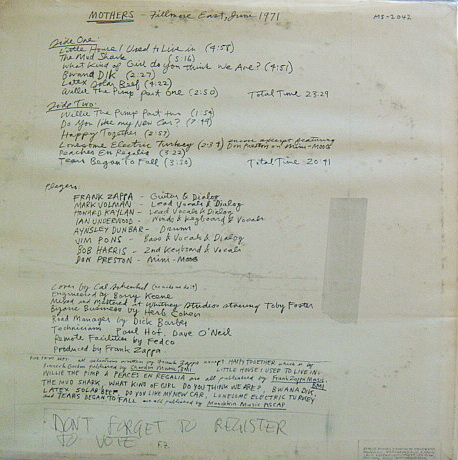 MOTHERS - Fillmore East, June 1971
MS-2042
Side One:
Little House I Used to Live in (4:58)
The Mud Shark (5:16)
What Kind of Girl do you think We Are? (4:51)
Bwana DIK (2:27)
Latex Solar Beef (4:22)
Willie The Pump Part One (2:50) Total Time 23:29
Side Two:
Willie The Pump Part two (1:54)
Do You like my New Car? (7:49)
Happy Together (2:57)
Lonesome Electric Turkey (2:34) encore excerpt featuring Don Preston on Mini-Moog
Peaches En Regalia (3:22)
Tears Began To Fall (3:30) Total Time 20:41
Players:
FRANK ZAPPA - Guitar & Dialog
MARK VOLMAN - Lead Vocals & Dialog
HOWARD KAYLAN - Lead Vocals & Dialog
IAN UNDERWOOD - Winds & Keyboard & Vocals
AYNSLEY DUNBAR - Drums
JIM PONS - Bass & Vocals & Dialog
BOB HARRIS - 2nd Keyboard & Vocals
DON PRESTON - Mini-Moog
Cover by Cal Schenkel
Engineered by Barry Keene
Mixed and Mastered at Whitney Studios starring Toby Foster
Bizarre Business by Herb Cohen
Road Manager by Dick Barber
Technicians Paul Hof, Dave O'Neil
Remote Facilities by Fedco
Produced by Frank Zappa
all selections written by Frank Zappa except HAPPY TOGETHER which is by
LITTLE HOUSE I USED TO LIVE IN,
WILLIE THE PUMP & PEACHES EN REGALIA are all published by Frank Zappa Music, BMI
THE MUD SHARK, WHAT KIND OF GIRL DO YOU THINK WE ARE?, BWANA DIK,
LATEX SOLAR BEEF, DO YOU LIKE MY NEW CAR, LONESOME ELECTRIC TURKEY
and TEARS BEGAN TO FALL are all published by Munchkin Music ASCAP
DON'T FORGET TO REGISTER
TO VOTE FZ